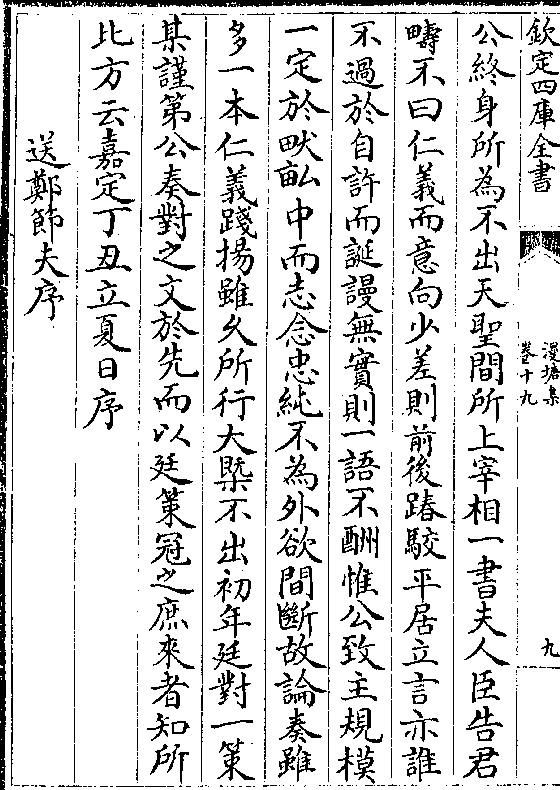 欽定四庫全書
漫塘集
卷十九
九
公終身所為不出天聖間所上宰相一書夫人臣告君
疇不曰仁義而意向少差則前後踳駮平居立言亦誰
不過於自許而誕謾無實則一語不酬惟公致主規模
一定於畎畝中而志念忠純不為外欲間斷故論奏雖
多一本仁義踐揚雖久所行大槩不出初年廷對一策
某謹第公奏對之文於先而以廷策冠之庶來者知所
比方云嘉定丁丑立夏日序
送鄭節夫序